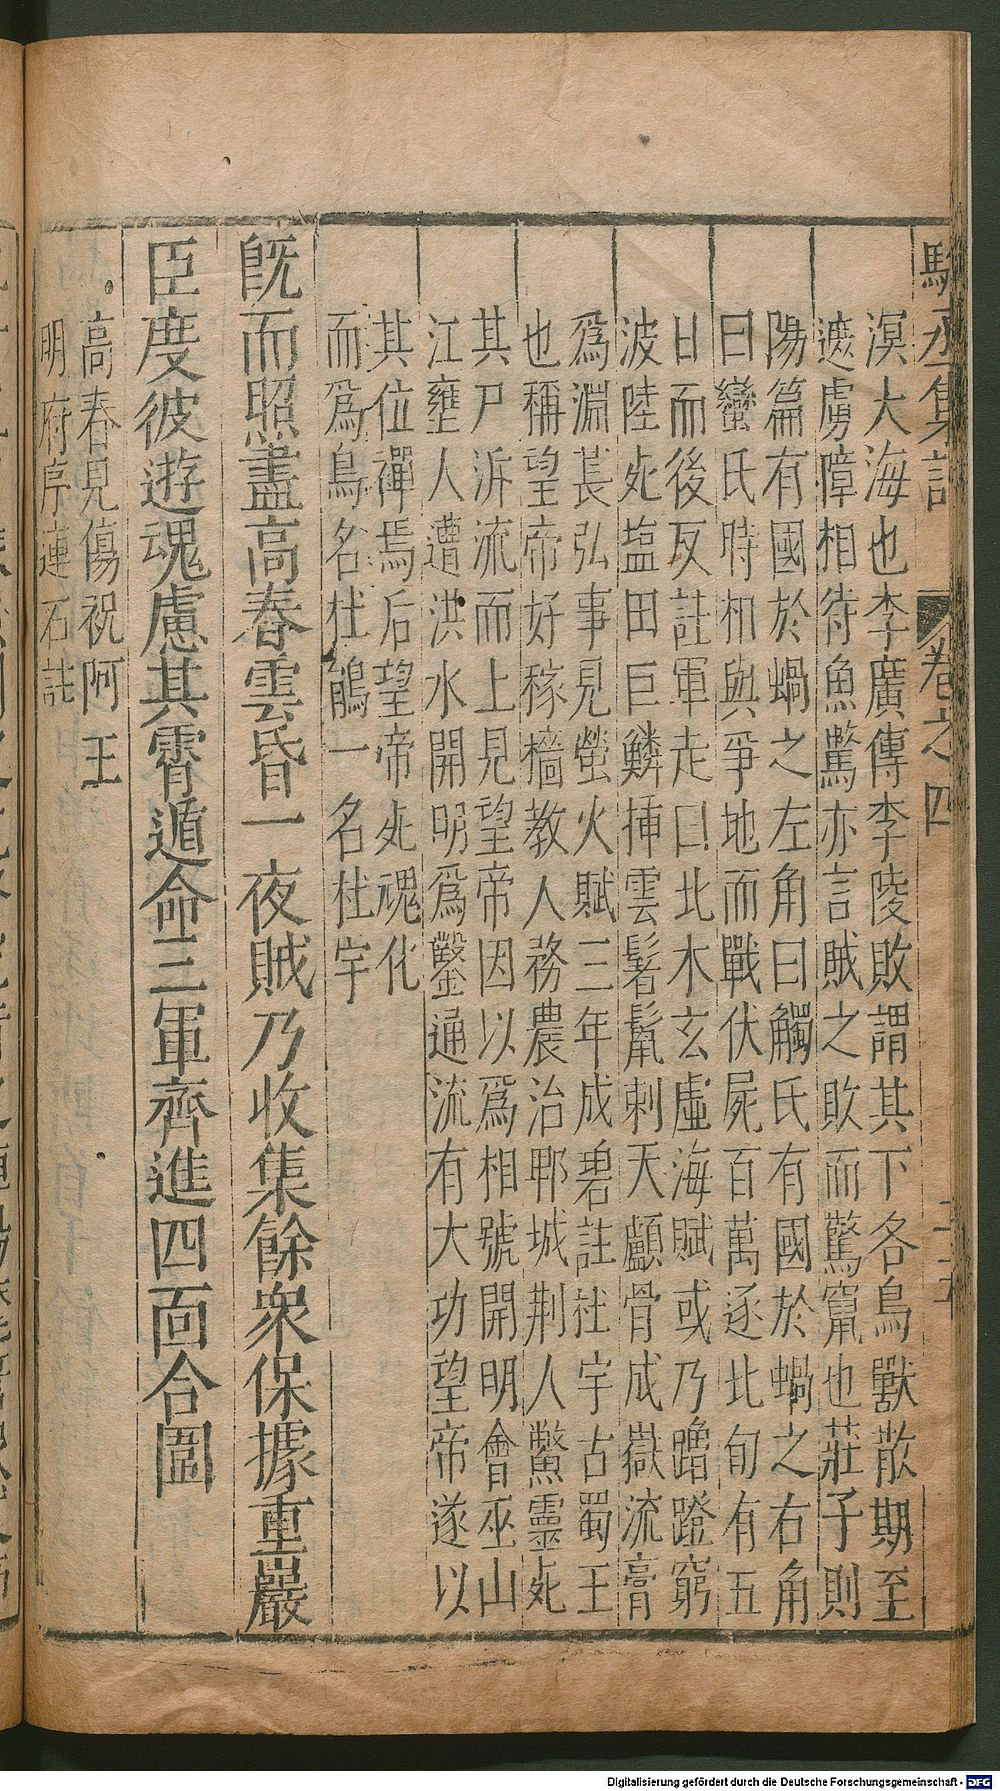 駱丞集註 卷之四
溟大海也李廣傳李陵敗謂其下各鳥獸散期至
遮虜障相待魚驚亦言賊之敗而驚竄也莊子則
陽篇有國於蝸之左角曰觸氏有國於蝸之右角
曰蠻氏時相與爭地而戰伏屍百萬逐北旬有五
日而後反註軍走曰北木玄虛海賦或乃蹭蹬窮
波陸死塩田巨鱗揷雲鬐鬣刺天顱骨成嶽流膏
爲淵萇弘事見螢火賦三年成碧註杜宇古蜀王
也稱望帝好稼穡教人務農治郫城荆人鱉靈死
其尸泝流而上見望帝因以爲相號開明會巫山
江壅人遭洪水開明爲鑿通流有大功望帝遂以
其位禪焉后望帝死魂化
而爲鳥名杜鵑一名杜宇
旣而照盡高舂雲昏一夜賊乃收集餘衆保據重巖
臣度彼遊魂慮其霄遁命三軍齊進四面合圍
高舂見傷祝阿王
明府序蓮石註
Digitalisierung gefördert durch die Deutsche Forschungsgemeinschaft - DFG